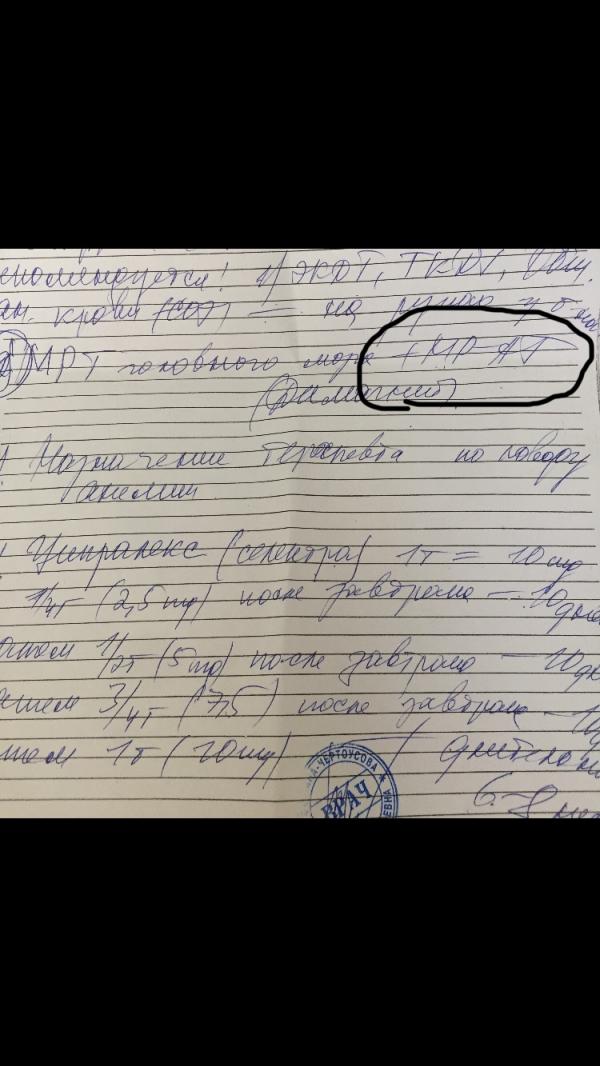 екомендуется! 1) ЭКДТ, ТКДГ, Общ.
ан. крови (СОЭ) — на руках у б-
МРТ головного мозга + МР-АГ
Назначение терапевта по поводу
анемии
Ципралекс (селектра) 1т = 10 mg
1/4т (2,5 mg) после завтрака — 10 дне
атем 1/2т (5 mg) после завтрака — 10 дн
атем 3/4т (7,5) после завтрака — 10
тем 1т (10 mg) длительно
6-8 мес
ЧЕРТОУСОВА
ВРАЧ
ЕВНА